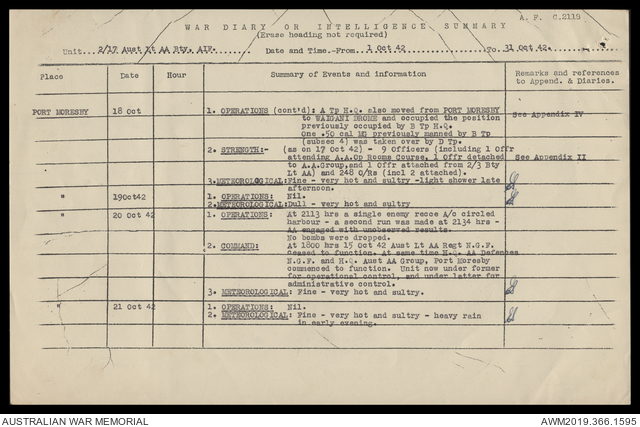 A. F. C.2118
WAR DIARY OR INTELLIGENCE SUMMARY
(Erase heading not required)
Unit.. 2/17 Aust Lt AA Bty. AIF....... Date and Time.-From....1 Oct 42........................To 31 Oct 42.
Place Date Hour Summary of Events and information Remarks and references to Append. & Diaries.
PORT MORESBY 18 Oct 1. OPERATIONS (cont'd): A Tp H.Q. also moved from PORT MORESBY
to WAIGANI DROME and occupied the position See Appendix IV
previously occupied by B Tp H.Q.
One .50 cal MG previously manned by B Tp
(subsec 4) was taken over by D Tp.
2. STRENGTH:- (as on 17 Oct 42) - 9 Officers (including 1 Offr
attending A.A.Op Rooms Course, 1 Offr detached See Appendix II
to A.A.Group, and 1 Offr attached from 2/3 Bty
Lt AA) and 248 O/Rs (incl 2 attached).
3.METEOROLOGICAL: Fine - very hot and sultry -light shower late
afternoon.
" 19Oct42 1. OPERATIONS: Nil.
2.METEOROLOGICAL: Dull - very hot and sultry
" 20 Oct 42 1. OPERATIONS: At 2113 hrs a single enemy recce A/c circled
harbour - a second run was made at 2134 hrs -
AA engaged with unobserved results.
No bombs were dropped.
2. COMMAND: At 1800 hrs 15 Oct 42 Aust Lt AA Regt N.G.F.
ceased to function. At same time H.Q. AA Defences
N.G.F. and H.Q. Aust AA Group, Port Moresby
commenced to function. Unit now under former
for operational control, and under latter for
administrative control.
3. METEOROLOGICAL: Fine - very hot and sultry.
" 21 Oct 42 1. OPERATIONS: Nil.
2. METEOROLOGICAL: Fine - very hot and sultry - heavy rain
in early evening.
AUSTRALIAN WAR MEMORIAL AWM2019.366.1595